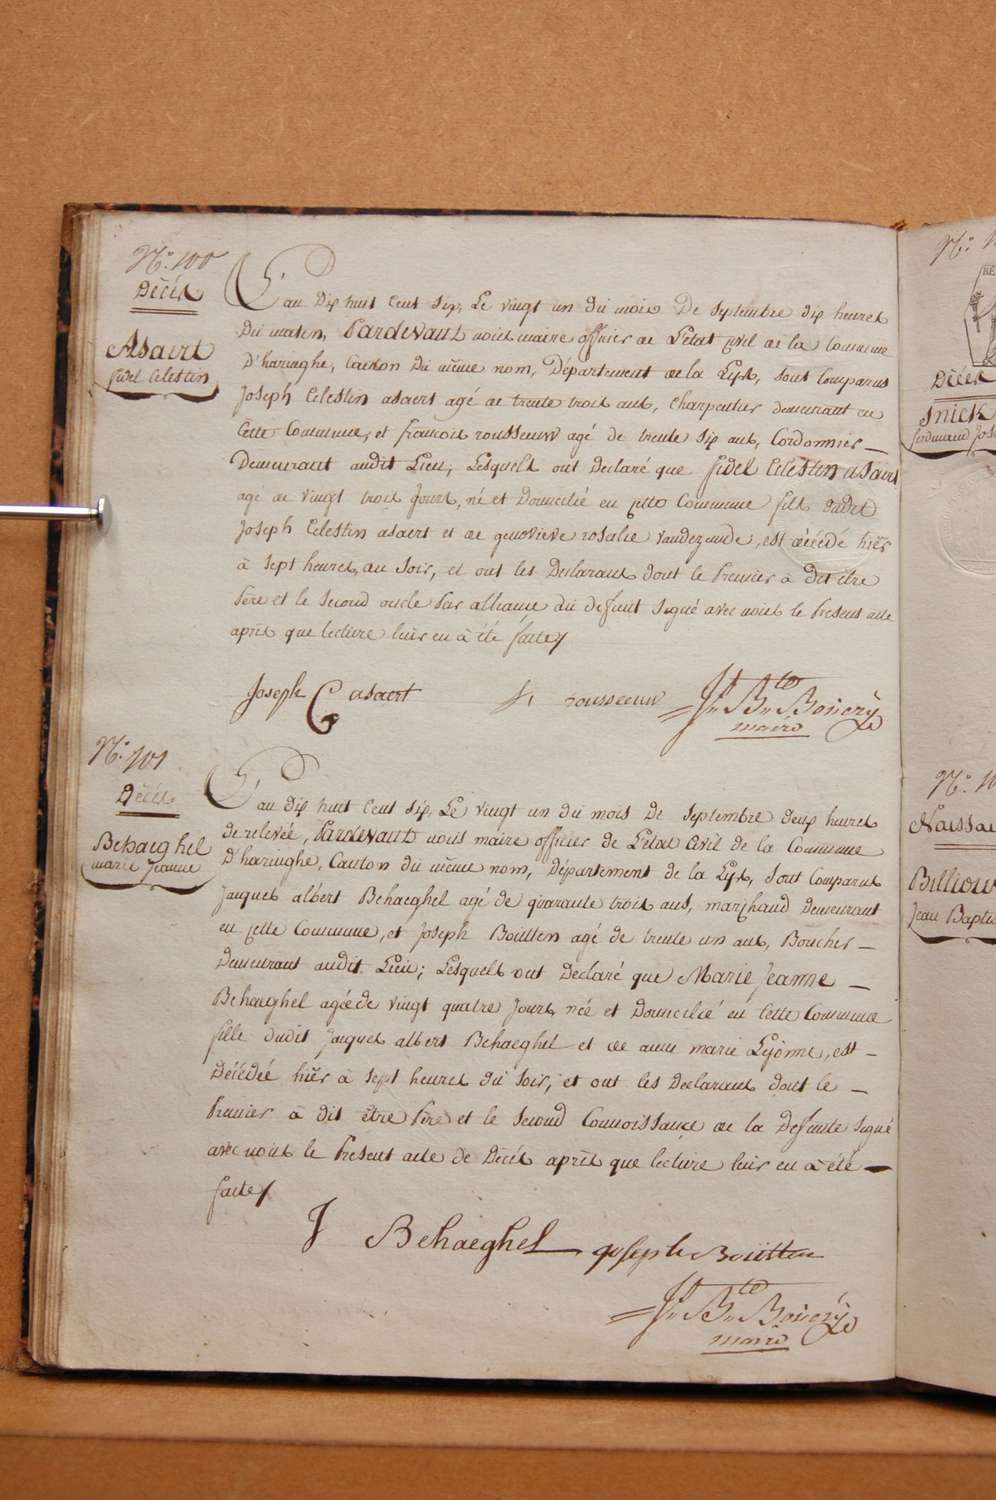 N.º 100
Décès
Asaert
fidel Celestin
L'an Dix huit Cent Six, Le vingt un du mois De Septembre dix heures
Du matin, Pardevant nous maire officier de L'etat Civil de la Commune
D'haringhe, Canton Du même nom, Département de la Lys, sont Comparus
Joseph Celestin asaert agé de trente trois ans, Charpentier demeurant en
Cette Commune, et françois rousseeuw agé de trente six ans, Cordonnier
Demeurant audit Lieu, Lesquels ont Declaré que fidel Celestin asaert
agé de vingt trois Jours, né et Domicilié en Cette Commune fils dudit
Joseph Celestin asaert et de genovieve rosalie vandezande, est décédé hiêr
à Sept heures du Soir, et ont les Declarans dont le Premier à Dit être
Père et le Second oncle Par alliance du defunt Signé avec nous le Present acte
après que lecture leur en à été faite
Joseph C asaert
f rousseeuw
J.n B.te Bouery
maire
N.º 101
Décès
Behaeghel
marie Jeanne
L'an dix huit Cent Six, Le vingt un du mois De Septembre deux heures
de relevée, Pardevant nous maire officier de L'etat Civil de la Commune
D'haringhe, Canton du même nom, Département de la Lys, Sont Comparus
Jacques albert Behaeghel agé de quarante trois ans, marchand Demeurant
en Cette Commune, et Joseph Boutten agé de trente un ans, Boucher
Demeurant audit Lieu; Lesquels ont Declaré que Marie Jeanne
Behaeghel agée de vingt quatre Jours née et Domicilié en Cette Commune
fille dudit Jacques albert Behaeghel et de anne marie Lejonne, est
Décédée hiêr à Sept heures du Soir, et ont les Declarans dont le
Premier à dit être Père et le Second Connoissance de la Defunte Signé
avec nous le Present acte de Décès après que lecture leur en à été
faite
J Behaeghel
Joseph Boutten
J.n B.te Bouery
maire
N.º 1
RE
Décès
Sniek
ferdinand Jos
N.º 10
Naissa
Billiouw
Jean Bapti